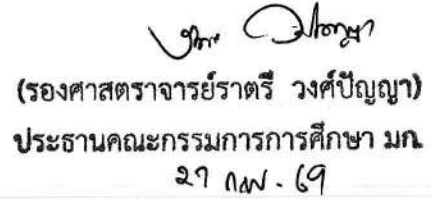 (รองศาสตราจารย์ราตรี วงศ์ปัญญา)
ประธานคณะกรรมการการศึกษา มก.
27 กพ. 69